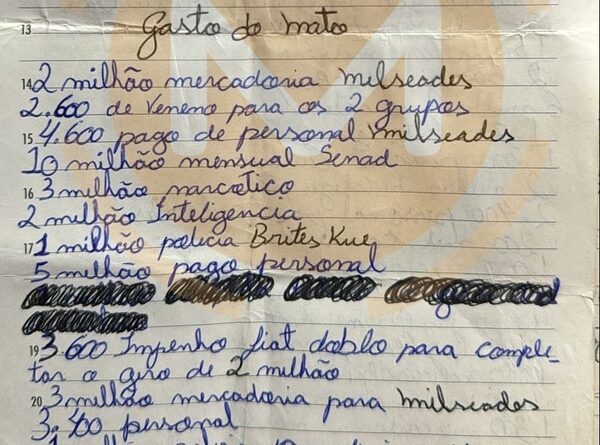 13
Gasto do mato
14 2 milhão mercadoria milseades
2.600 de veneno para os 2 grupos
15 4.600 pago de personal milseades
10 milhão mensual Senad
16 3 milhão narcotico
2 milhão Inteligencia
17 1 milhão policia Brites Kue
5 milhão pago personal
19 3.600 Impenho fiat doblo para comple-
tar o giro de 2 milhão
20 3 milhão mercadoria para milseades
3.400 personal